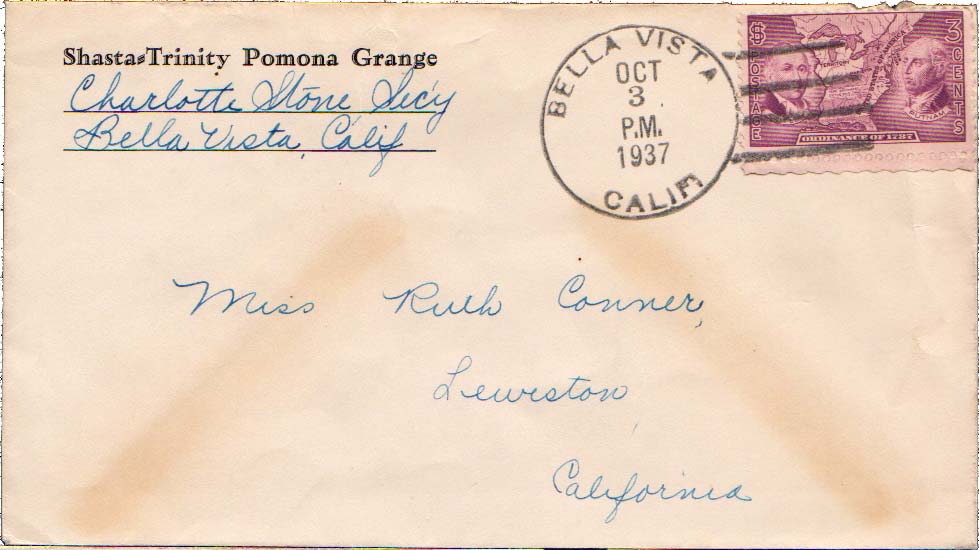 Shasta-Trinity Pomona Grange
Charlotte Stone Secy
Bella Vista, Calif
BELLA VISTA
OCT
3
P.M.
1937
CALIF
$ POSTAGE
3 CENTS
TERRITORY
PUTNAM
ORDINANCE OF 1787
Miss Ruth Conner,
Lewiston
California